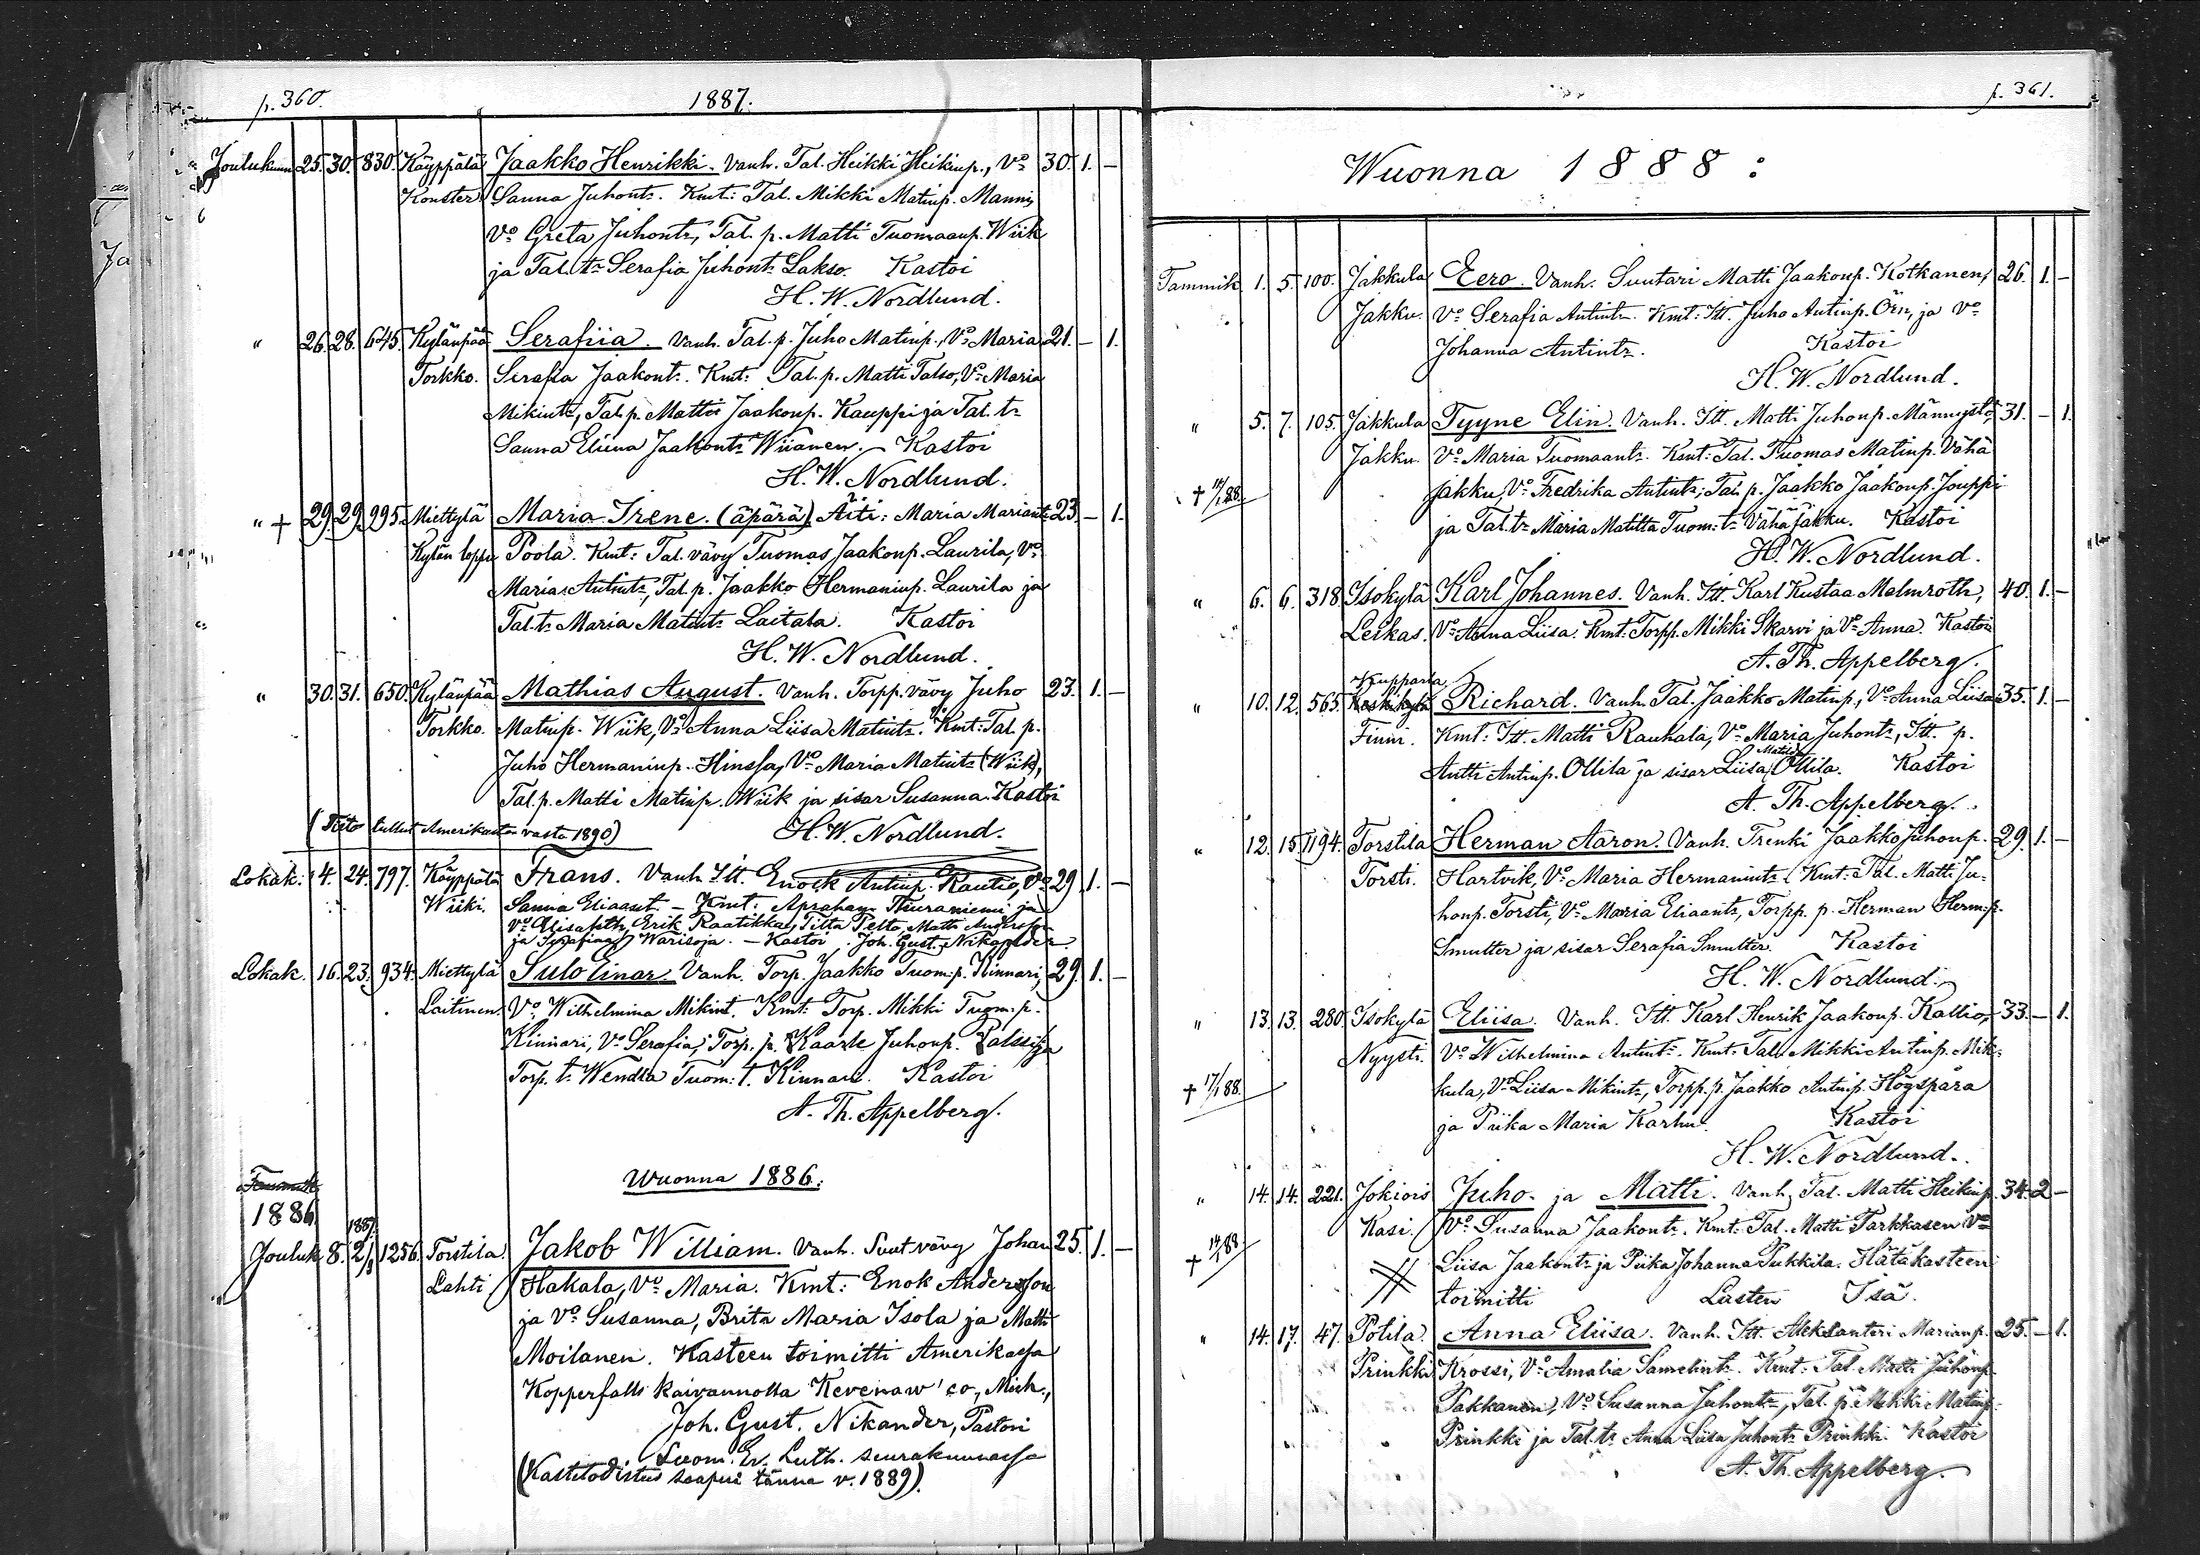 p. 360.
1887.
Joulukuun 25. 30. 830. Käyppälä Jaakko Henrikki. Vanh. Tal. Heikki Heikinp., Vo 30. 1. —
Konster Sanna Juhontr. Kmt: Tal. Mikki Matinp. Mannis
Vo Greta Juhontr, Tal. p. Matti Tuomaanp. Wiik
ja Tal. tr Serafia Juhontr Lakso. Kastoi
H. W. Nordlund.
" 26. 28. 645. Kylänpää Serafiia. Vanh. Tal. p. Juho Matinp., Vo Maria 21. — 1.
Torkko. Serafia Jaakontr. Kmt: Tal. p. Matti Talso, Vo Maria
Mikintr, Tal. p. Matti Jaakonp. Kauppi ja Tal. tr
Sanna Eliina Jaakontr Wiianen. Kastoi
H. W. Nordlund.
" + 29. 29. 995. Miettylä Maria Irene. (äpärä) Äiti: Maria Mariantr 23 — 1.
Kylän loppu Poola. Kmt: Tal. vävy Tuomas Jaakonp. Laurila, Vo
Maria Antintr, Tal. p. Jaakko Hermaninp. Laurila ja
Tal. tr Maria Matintr Laitala. Kastoi
H. W. Nordlund.
" 30. 31. 650. Kylänpää Mathias August. Vanh. Torpp. vävy Juho 23. 1. —
Torkko. Matinp. Wiik, Vo Anna Liisa Matintr. Kmt: Tal. p.
Juho Hermaninp. Hinssa, Vo Maria Matintr (Wiik),
Tal. p. Matti Matinp. Wiik ja sisar Susanna. Kastoi
(Tieto tullut Amerikasta vasta 1890) H. W. Nordlund.
Lokak. 4. 24. 797. Käyppälä Frans. Vanh. Itt. Enock Antinp. Rautio, Vo 29 1. —
Wiiki. Sanna Eliaant. — Kmt: Abraham Thuraniemi ja
Vo Elisabeth, Erik Raatikka, Titta Pelto, Matti Anderson
ja Serafina Warisoja. — Kastoi Joh. Gust. Nikander.
Lokak. 16. 23. 934. Miettylä Sulo Einar. Vanh. Torp. Jaakko Tuom: p. Kinnari, 29. 1. —
Laitinen. Vo Wilhelmina Mikint. Kmt: Torp. Mikki Tuom: p.
Kinnari, Vo Serafia, Torp. p. Kaarle Juhonp. Palssi ja
Torp. tr Wendla Tuom: t. Kinnari. Kastoi
A. Th. Appelberg.
Wuonna 1886:
1886
1887
Jouluk 8. 2/1 1256. Torstila. Jakob William. Vanh. Suut. vävy Johan 25. 1. —
Lahti Hakala, Vo Maria. Kmt: Enok Andersson
ja Vo Susanna, Brita Maria Isola ja Matti
Moilanen. Kasteen toimitti Amerikassa
Kopperfalls kaivannolla Kevenaw' co, Mich.,
Joh. Gust. Nikander, Pastori
Suom. Ev. Luth. seurakunnassa
(Kastetodistus saapui tänne v. 1889).
p. 361.
Wuonna 1888:
Tammik 1. 5. 100. Jakkula Eero. Vanh. Suutari Matti Jaakonp. Kotkanen, 26. 1. —
Jakku. Vo Serafia Antintr. Kmt: Itt. Juho Antinp. Örn, ja Vo
Johanna Antintr. Kastoi
H. W. Nordlund.
" 5. 7. 105. Jakkula Tyyne Elin. Vanh. Itt. Matti Juhonp. Männystö, 31. — 1.
Jakku Vo Maria Tuomaantr. Kmt: Tal. Tuomas Matinp. Vähä
jakku, Vo Fredrika Antintr, Tal. p. Jaakko Jaakonp. Jouppi
ja Tal. tr Maria Matilta Tuom: tr Vähä Jakku. Kastoi
H. W. Nordlund.
" 6. 6. 318 Isokylä Karl Johannes. Vanh. Itt. Karl Kustaa Malmroth, 40. 1. —
Leikas. Vo Anna Liisa. Kmt: Torpp. Mikki Skarvi ja Vo Anna. Kastoi
A. Th. Appelberg.
Kupparla
" 10. 12. 565. Keskikylä Richard. Vanh. Tal. Jaakko Matinp., Vo Anna Liisa 35. 1. —
Finni. Kmt: Itt. Matti Rauhala, Vo Maria Juhontr, Itt. p.
Antti Antinp. Ollila ja sisar Liisa Matilda Ollila. Kastoi
A. Th. Appelberg.
" 12. 15 1194. Torstila Herman Aaron. Vanh. Trenki Jaakko Juhonp. 29. 1. —
Torsti. Hartvik, Vo Maria Hermanintr. Kmt: Tal. Matti Ju-
honp. Torsti, Vo Maria Eliaantr, Torpp. p. Herman Herm: p.
Smulter ja sisar Serafia Smulter. Kastoi
H. W. Nordlund.
" 13. 13. 280 Isokylä Eliisa. Vanh. Itt. Karl Henrik Jaakonp. Kallio, 33. — 1.
Nyysti. Vo Wilhelmina Antintr. Kmt: Tal. Mikki Antinp. Mik-
+ 17/1 88. kula, Vo Liisa Mikintr, Torpp. p. Jaakko Antinp. Högspära
ja Piika Maria Karhu. Kastoi
H. W. Nordlund.
" 14. 14. 221. Jokiois Juho. ja Matti. Vanh. Tal. Matti Heikinp. 34. 2 —
Kasi. Vo Susanna Jaakontr. Kmt: Tal. Matti Tarkkasen Vo
+ 14/1 88 Liisa Jaakontr ja Piika Johanna Pukkila. Hätäkasteen
toimitti Lasten Isä.
" 14. 17. 47. Potila. Anna Eliisa. Vanh. Itt. Aleksanteri Marianp. 25. — 1.
Prinkki Krossi, Vo Amalia Samelintr. Kmt: Tal. Matti Juhonp.
Pakkanen, Vo Susanna Juhontr, Tal. p. Mikki Matinp.
Prinkki ja Tal. tr Anna Liisa Juhontr Prinkki. Kastoi
A. Th. Appelberg.